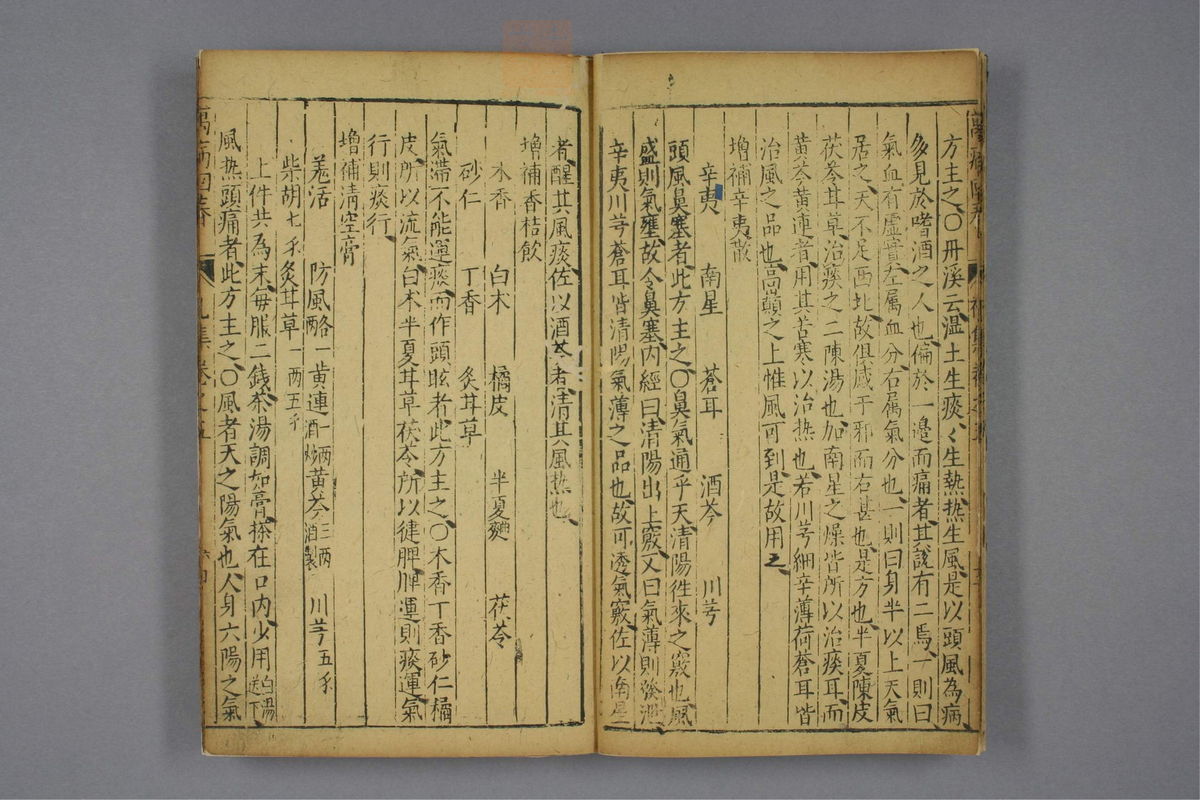 方主之○丹溪云温土生痰〻生熱熱生風是以頭風為病
多見於嗜酒之人也偏於一邊而痛者其說有二焉一則曰
氣血有虛實左属血分右属氣分也一則曰身半以上天氣
居之天不足西北故俱感于邪而右甚也是方也半夏陳皮
茯苓甘草治痰之二陳湯也加南星之燥皆所以治痰耳而
黃芩黃連者用其苦寒以治热也若川芎細辛薄荷蒼耳皆
治風之品也高巔之上惟風可到是故用之
增補辛夷散
辛夷 南星 蒼耳 酒芩 川芎
頭風鼻塞者此方主之○鼻氣通乎天清陽徃來之竅也風
盛則氣壅故令鼻塞内經曰清陽出上竅又曰氣薄則發泄
辛夷川芎蒼耳皆清陽氣薄之品也故可透氣竅佐以南星
者醒其風痰佐以酒芩者清其風热也
增補香桔飲
木香 白木 橘皮 半夏麯 茯苓
砂仁 丁香 炙甘草
氣滞不能運痰而作頭眩者此方主之○木香丁香砂仁橘
皮所以流氣白木半夏甘草茯苓所以健脾脾運則痰運氣
行則痰行
增補清空膏
羗活 防風各一两 黄連一两酒炒 黄芩三两酒製 川芎五錢
柴胡七錢 炙甘草一两五錢
上件共為末每服二錢茶湯調如膏搽在口内少用白湯送下
風热頭痛者此方主之○風者天之陽氣也人身六陽之氣
萬病回春